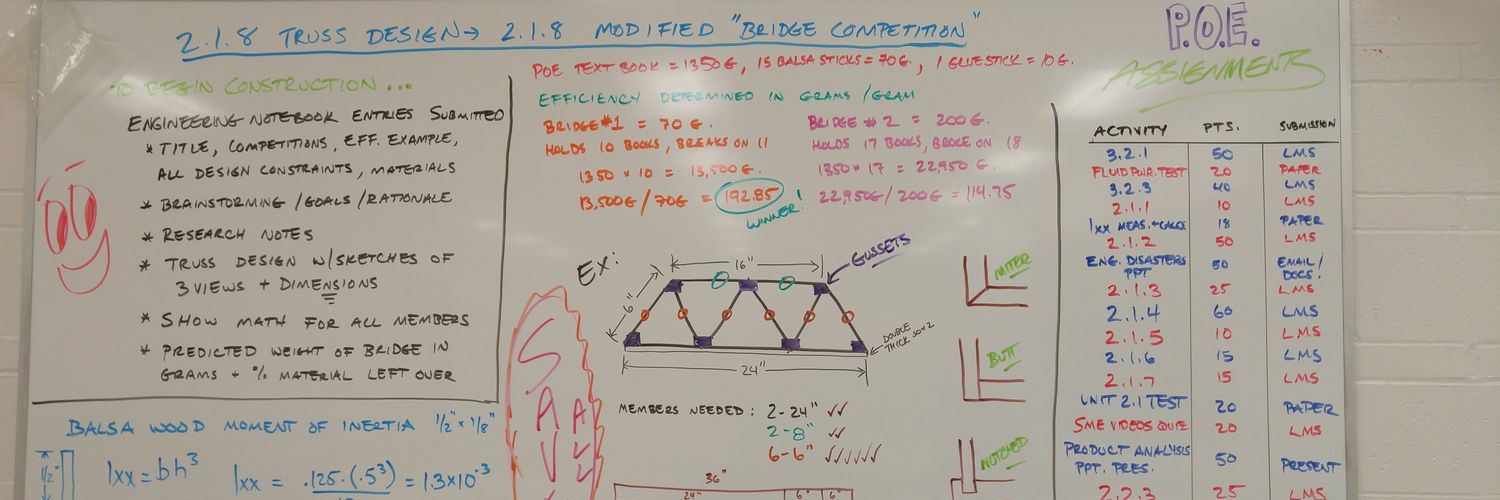 2.1.8 TRUSS DESIGN → 2.1.8 MODIFIED "BRIDGE COMPETITION"
TO BEGIN CONSTRUCTION ...
ENGINEERING NOTEBOOK ENTRIES SUBMITTED
* TITLE, COMPETITIONS, EFF. EXAMPLE,
ALL DESIGN CONSTRAINTS, MATERIALS
* BRAINSTORMING / GOALS / RATIONALE
* RESEARCH NOTES
* TRUSS DESIGN W/SKETCHES OF
3 VIEWS + DIMENSIONS
* SHOW MATH FOR ALL MEMBERS
* PREDICTED WEIGHT OF BRIDGE IN
GRAMS + % MATERIAL LEFT OVER
BALSA WOOD MOMENT OF INERTIA 1/2" x 1/8"
1/2"
Ixx = bh³
Ixx = .125 · (.5³) = 1.3x10⁻³
POE TEXT BOOK = 1350 G, 15 BALSA STICKS = 70 G, 1 GLUE STICK = 10 G.
EFFICIENCY DETERMINED IN GRAMS/GRAM
BRIDGE #1 = 70 G.
HOLDS 10 BOOKS, BREAKS ON 11
1350 * 10 = 13,500 G.
13,500G / 70G = 192.85
WINNER!
BRIDGE # 2 = 200 G.
HOLDS 17 BOOKS, BROKE ON 18
1350 * 17 = 22,950 G.
22,950G / 200G = 114.75
SAVE
ALL
EX:
16"
GUSSETS
6"
DOUBLE
24"
MEMBERS NEEDED: 2-24" ✓✓
2-8" ✓✓
6-6" ✓✓✓✓✓✓
36"
24" 6" 6"
MITER
BUTT
NOTCHED
P.O.E.
ASSIGNMENTS
ACTIVITY PTS. SUBMISSION
3.2.1 50 LMS
FLUID PWR. TEST 20 PAPER
3.2.3 40 LMS
2.1.1 10 LMS
Ixx MEAS. + CALCS. 18 PAPER
2.1.2 50 LMS
ENG. DISASTERS PPT 50 EMAIL/DOCS.
2.1.3 25 LMS
2.1.4 60 LMS
2.1.5 10 LMS
2.1.6 15 LMS
2.1.7 15 LMS
UNIT 2.1 TEST 20 PAPER
SME VIDEOS QUIZ 20 LMS
PRODUCT ANALYSIS
PPT. PRES. 50 PRESENT
2.2.3 25 LMS